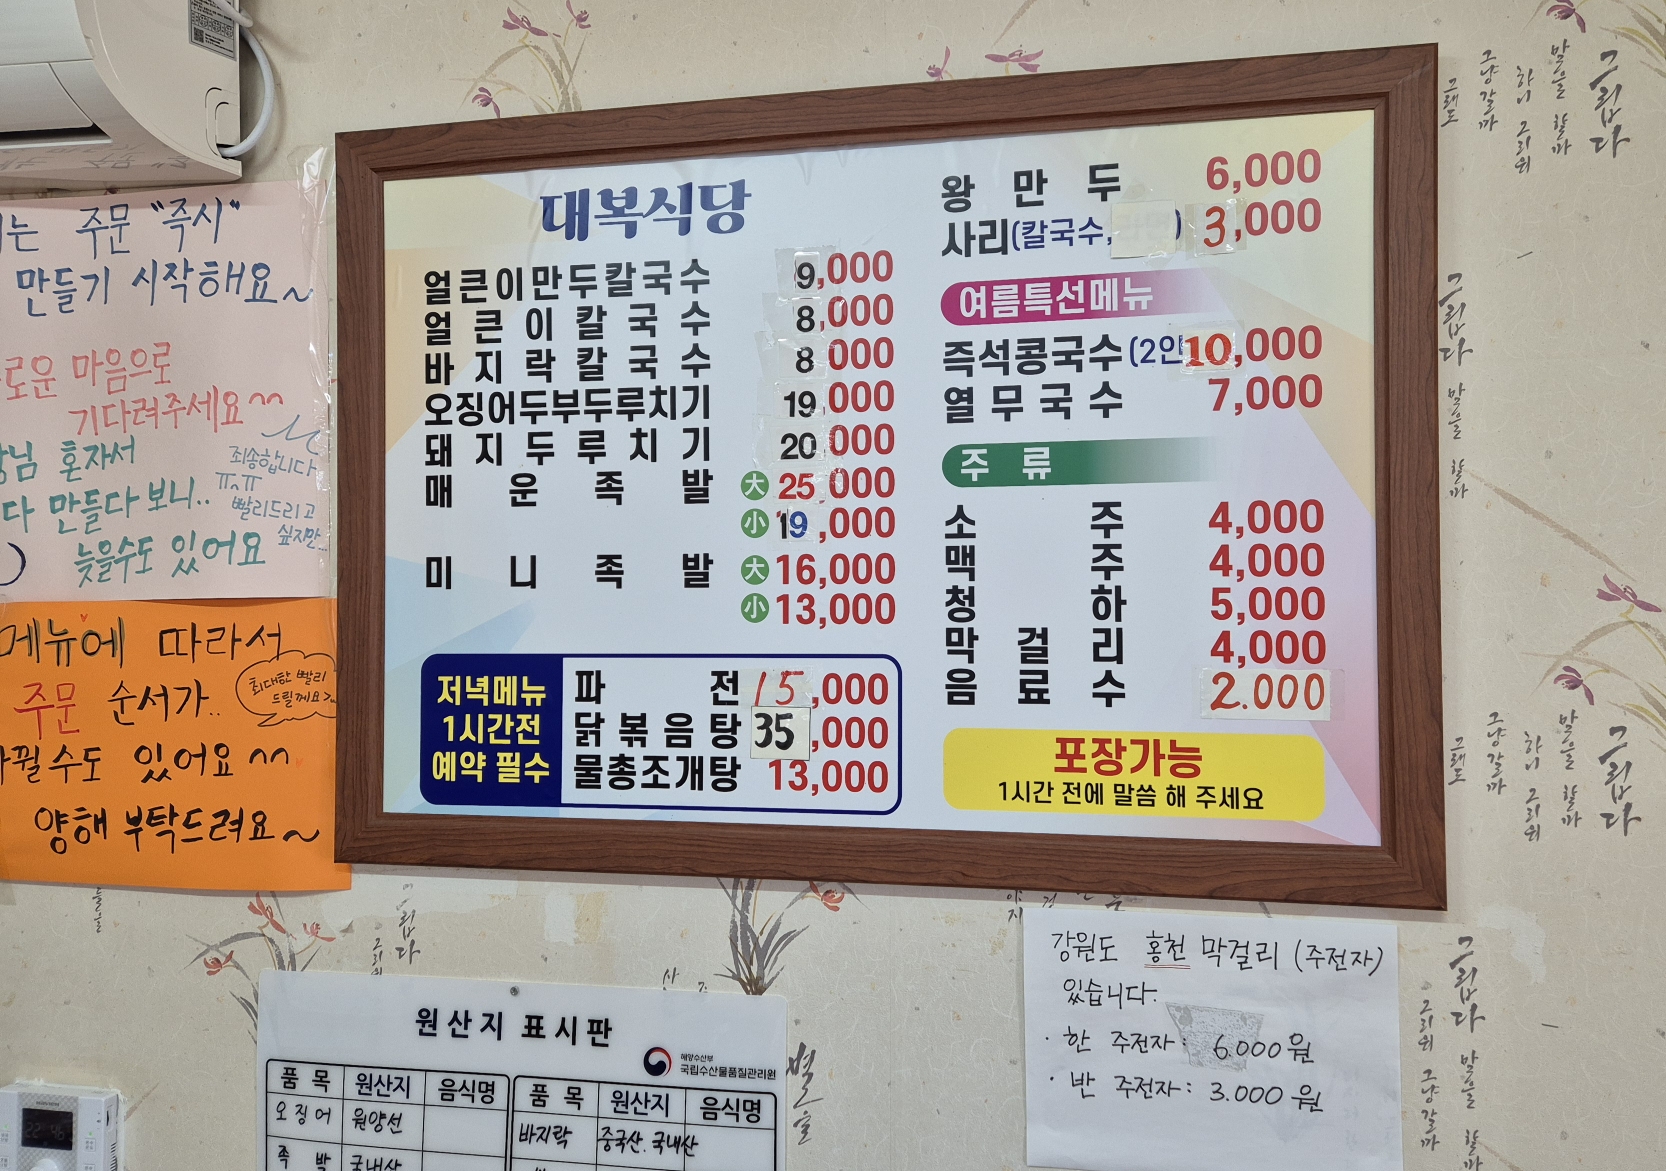 대복식당
얼큰이만두칼국수 9,000
얼큰이칼국수 8,000
바지락칼국수 8,000
오징어두부두루치기 19,000
돼지두루치기 20,000
매운족발 大 25,000
小 19,000
미니족발 大 16,000
小 13,000
저녁메뉴
1시간전
예약 필수
파전 15,000
닭볶음탕 35,000
물총조개탕 13,000
왕만두 6,000
사리(칼국수, ) 3,000
여름특선메뉴
즉석콩국수 (2인 10,000
열무국수 7,000
주류
소주 4,000
맥주 4,000
청하 5,000
막걸리 4,000
음료수 2.000
포장가능
1시간 전에 말씀 해 주세요
는 주문 "즉시"
만들기 시작해요~
로운 마음으로
기다려주세요^^
님 혼자서
다 만들다 보니..
늦을수도 있어요
죄송합니다
ㅠ^ㅠ
빨리드리고
싶지만...
메뉴에 따라서
주문 순서가..
바뀔수도 있어요^^
양해 부탁드려요~
최대한 빨리
드릴께요
강원도 홍천 막걸리 (주전자)
있습니다.
· 한 주전자 : 6.000원
· 반 주전자 : 3.000원
원산지 표시판
해양수산부
국립수산물품질관리원
품목 원산지 음식명
오징어 원양선
족발 국내산
품목 원산지 음식명
바지락 중국산. 국내산
그립다
말을 할까
하니 그리워
그냥 갈까
그래도
그립다
말을 할까
그립다
말을 할까
하니 그리워
그냥 갈까
그래도
그립다
말을 할까
그리워
그냥 갈까